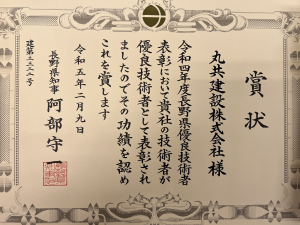 賞状
丸共建設株式会社 様
令和四年度長野県優良技術者
表彰において貴社の技術者が
優良技術者として表彰され
ましたのでその功績を認め
これを賞します
令和五年二月九日
長野県知事 阿部守一